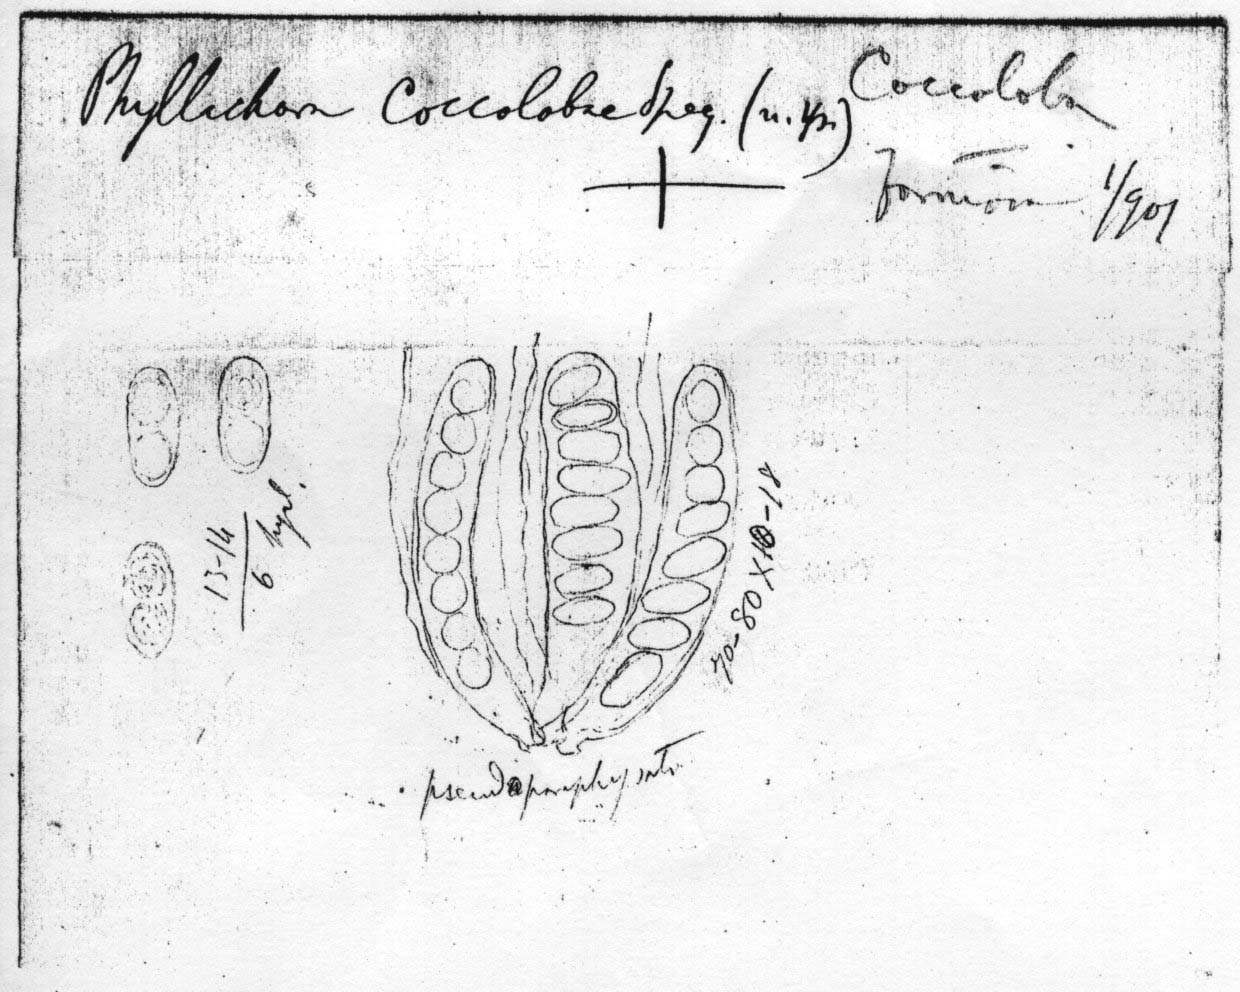 Phyllachora Coccolobae Speg. (n. sp.)
Coccoloba
Formosa 1/901
13-14
6 hyal.
70-80 X 10-18
pseudoparaphysato